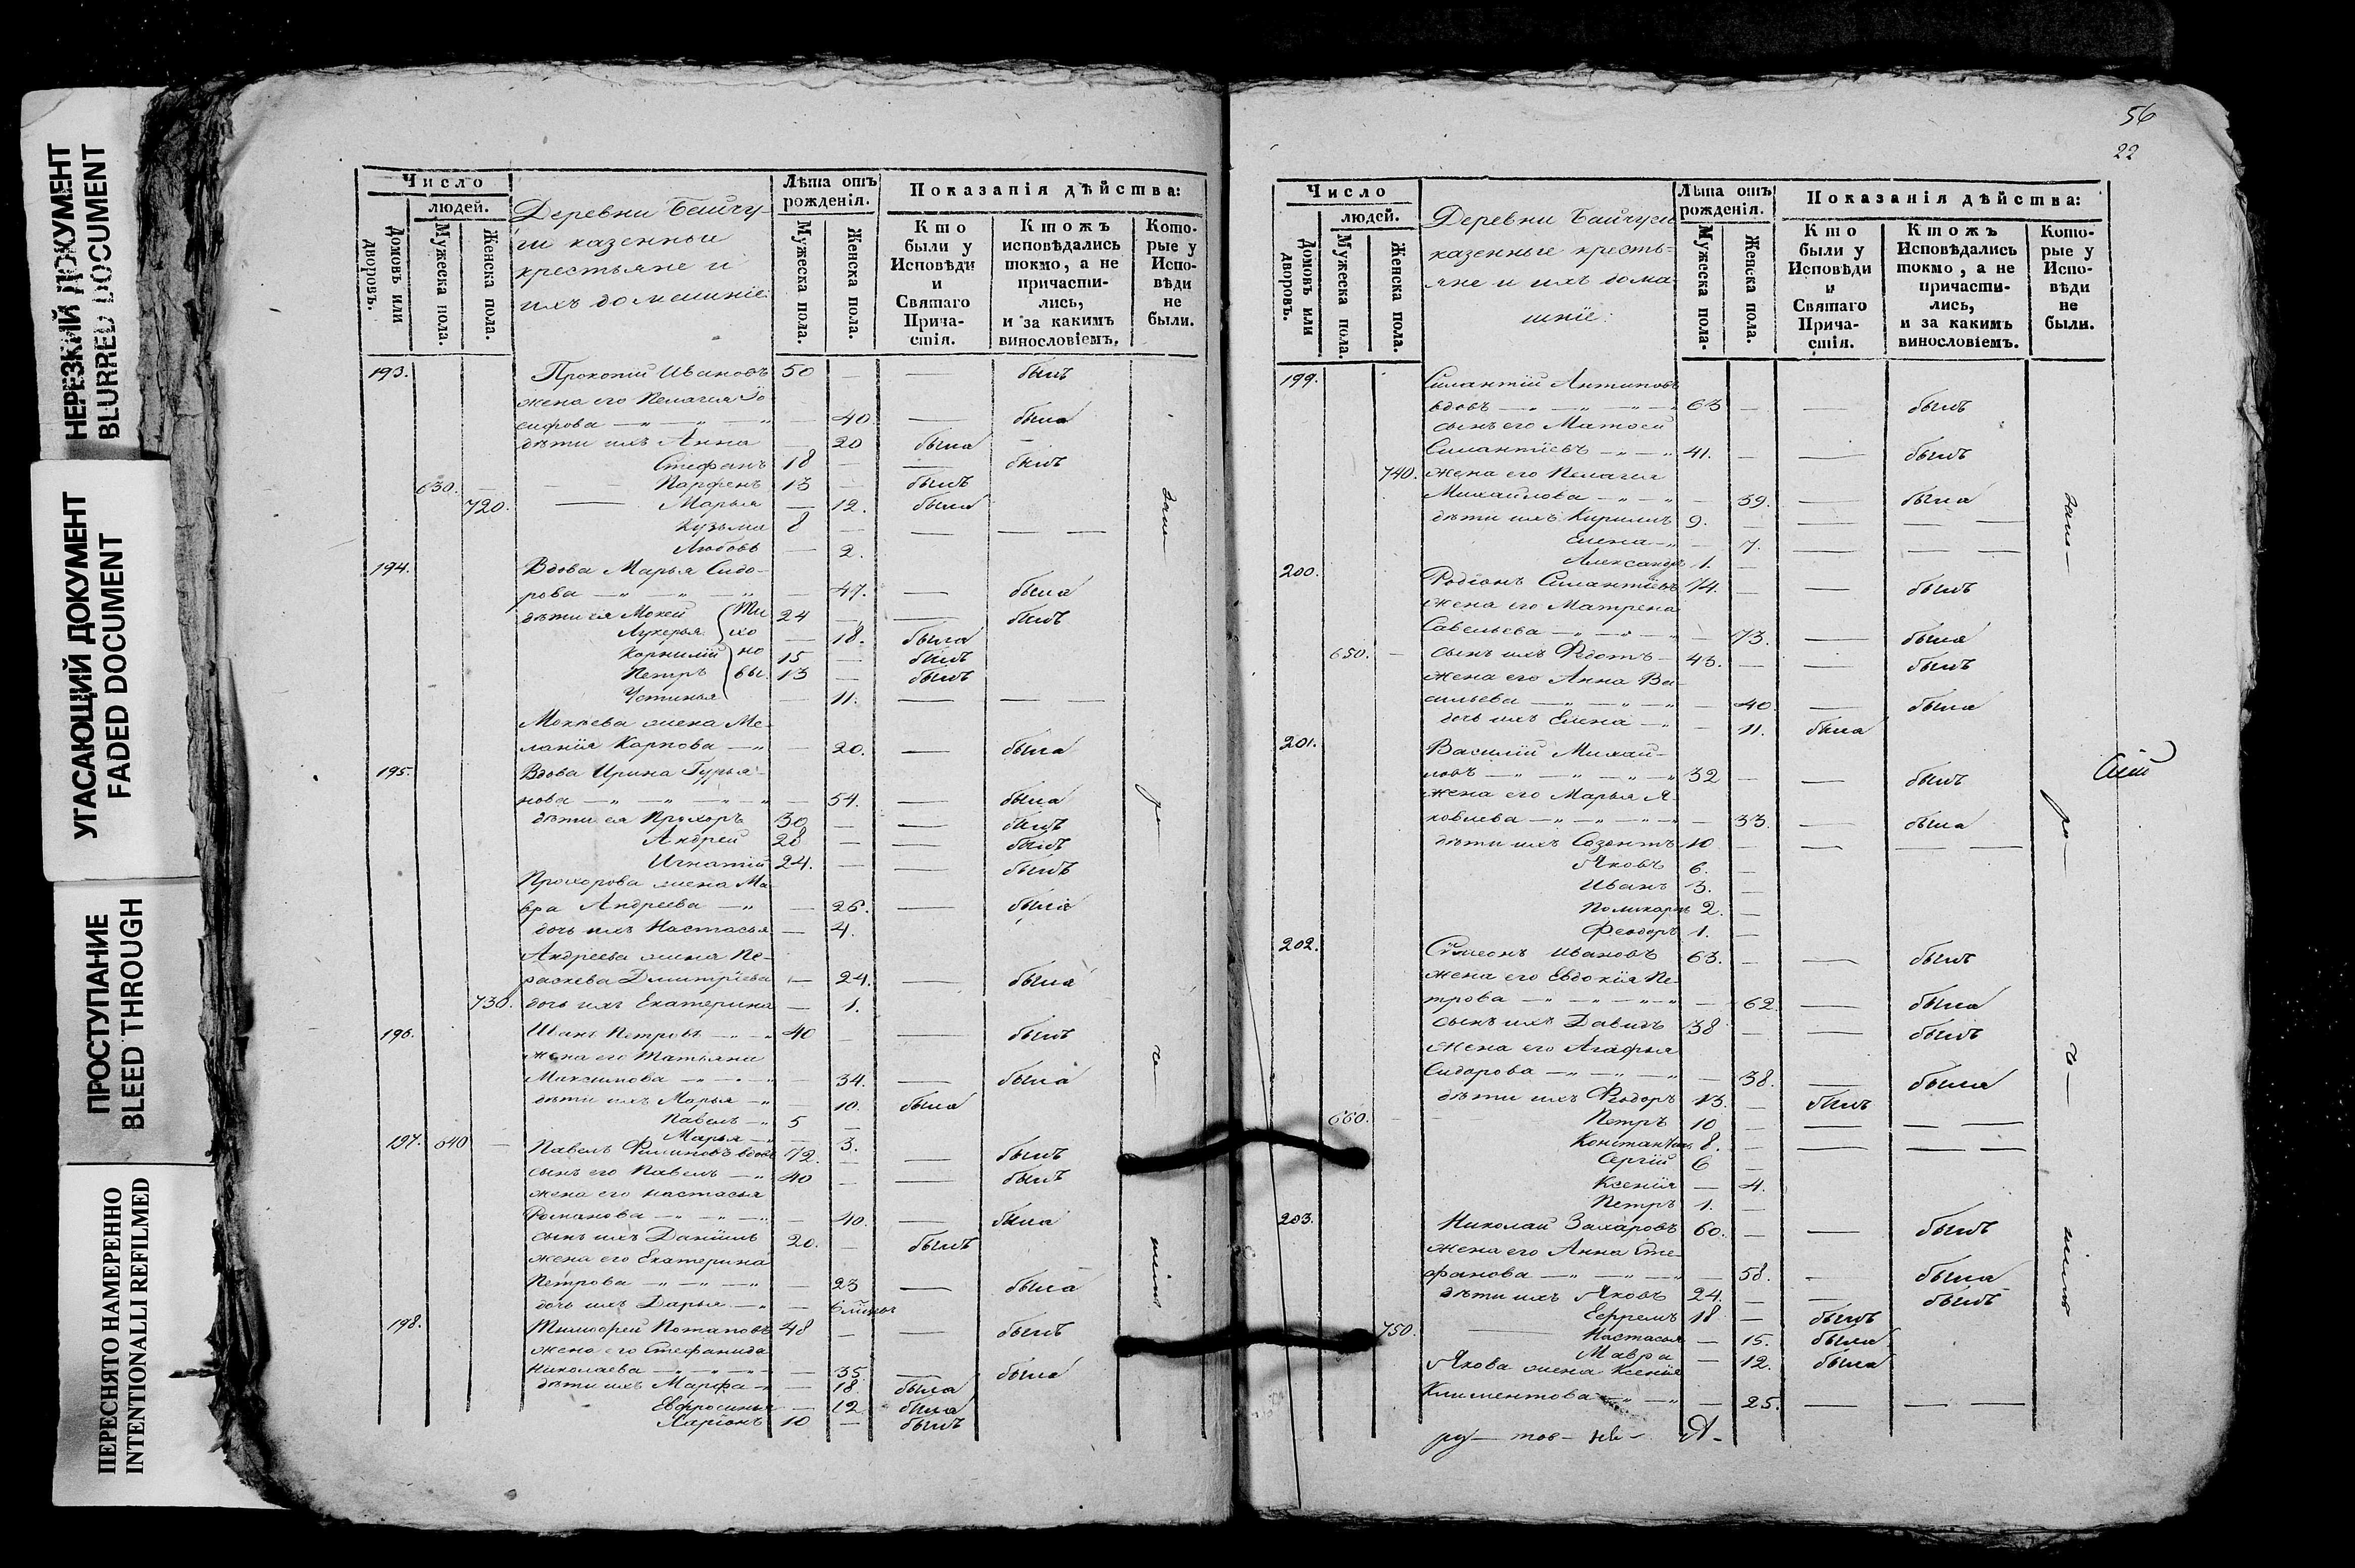 НЕРЕЗКИЙ ДОКУМЕНТ
BLURRED DOCUMENT
УГАСАЮЩИЙ ДОКУМЕНТ
FADED DOCUMENT
ПРОСТУПАНИЕ
BLEED THROUGH
ПЕРЕСНЯТО НАМЕРЕННО
INTENTIONALLI REFILMED
Число
людей.
Домовъ или дворовъ.
Мужеска пола.
Женска пола.
Деревни Байчу-
ги казенные
крестьяне и
ихъ домашніе
Лѣта отъ рожденія.
Мужеска пола.
Женска пола.
Показанія дѣйства:
Кто были у Исповѣди и Святаго Прича-стія.
Ктожъ исповѣдались токмо, а не причасти-лись, и за какимъ винословіемъ.
Кото-рые у Испо-вѣди не были.
193. Прокопій Ивановъ 50 — — былъ
жена его Пелагия Іо
сифова — 40. — была
дѣти ихъ Анна — 20 была —
Стефанъ 18 — — былъ
630. Парфенъ 13 — былъ
720. Марья — 12. была
Кузьма 8 — — — —
Любовь — 2.
194. Вдова Марья Сидо-
рова — 47. — была
дѣти ея Мокей (Ти 24 — — былъ
Лукерья хо — 18. была
Корнилій но 15 — былъ
Петръ вы. 13 — былъ
Устинья — 11. — — —
Мокѣева жена Ме-
ланія Карпова — 20. — была
195. Вдова Ирина Гурья-
нова — 54. — была
дѣти ея Прохоръ 30 — — былъ
Андрей 28 — — былъ
Игнатій 24. — — былъ
Прохорова жена Ма
вра Андреева — 26. — была
дочь ихъ Настасья — 4.
Андреева жена Пе-
раскева Дмитріева — 24. — была
730. дочь ихъ Екатерина — 1.
196. Иванъ Петровъ 40 — — былъ
жена его Татьяна
Максимова — 34. — была
дѣти ихъ Марья — 10. была
Павелъ 5 —
Марья — 3.
197. 640 — Павелъ Филиповъ вдовъ 72. — — былъ
сынъ его Павелъ 40 — — былъ
жена его Настасья
Романова — 40. — была
сынъ ихъ Даніилъ 20. — былъ
жена его Екатерина
Петрова — 23 — была
дочь ихъ Дарья —
198. Тимофей Потаповъ 48 — — былъ
жена его Стефанида
Николаева — 35. — была
дѣти ихъ Марфа — 18. была
Евфросинья — 12. была
Ларіонъ 10 — былъ
56
22
Число
людей.
Домовъ или дворовъ.
Мужеска пола.
Женска пола.
Деревни Байчуги
казенные кресть-
яне и ихъ дома
шніе:
Лѣта отъ рожденія.
Мужеска пола.
Женска пола.
Показанія дѣйства:
Кто были у Исповѣди и Святаго Прича-стія.
Ктожъ Исповѣдались токмо, а не причасти-лись, и за какимъ винословіемъ.
Кото-рые у Испо-вѣди не были.
199. Силантій Антиповъ
вдовъ 63 — — былъ
сынъ его Матвей
Силантіевъ 41. — — былъ
740. жена его Пелагия
Михайлова — 39. — была
дѣти ихъ Кирилъ 9. — — — —
Елена — 7. — — —
Александръ 1. —
200. Родіонъ Силантіевъ 74. — — былъ
жена его Матрена
Савельева — 73. — была
650. — сынъ ихъ Федотъ 43. — — былъ
жена его Анна Ва-
сильева — 40. — была
дочь ихъ Елена — 11. была
201. Василій Михай-
ловъ 32 — — былъ
жена его Марья Я-
ковлева — 33. — была
дѣти ихъ Созонтъ 10 — — — —
Яковъ 6. —
Иванъ 3. —
Поликарпъ 2. —
Феодоръ 1. —
202. Сѵмеонъ Ивановъ 63. — — былъ
жена его Евдокія Пе-
трова — 62. — была
сынъ ихъ Давидъ 38 — — былъ
жена его Агафья
Сидорова — 38. — была
дѣти ихъ Феодоръ 13. — былъ
660. Петръ 10 — — — —
Константинъ 8. — — — —
Сергій 6 —
Ксенія — 4.
Петръ 1. —
203. Николай Захаровъ 60. — — былъ
жена его Анна Сте-
фанова — 58. — была
дѣти ихъ Яковъ 24. — — былъ
Ефремъ 18 — былъ
750. Настасья — 15. была
Мавра — 12. была
Якова жена Ксенія
Климентова — 25. — — —